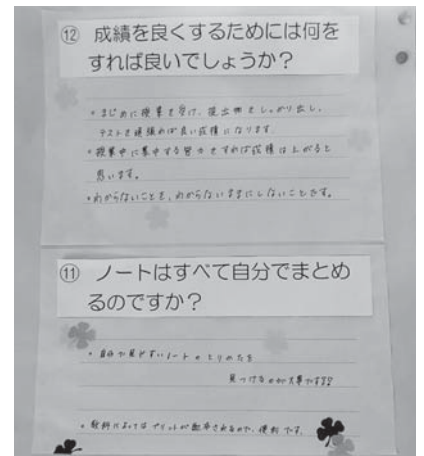 ⑫ 成績を良くするためには何を
すれば良いでしょうか?
・まじめに授業を受け、提出物をしっかり出し、
テストを頑張れば良い成績になります。
・授業中に集中する努力をすれば成績は上がると
思います。
・わからないことを、わからないままにしないことです。
⑪ ノートはすべて自分でまとめ
るのですか?
・自分で見やすいノートのとりかたを
見つけるのが大事です!!
・教科によってはプリントが配布されるので、便利です。